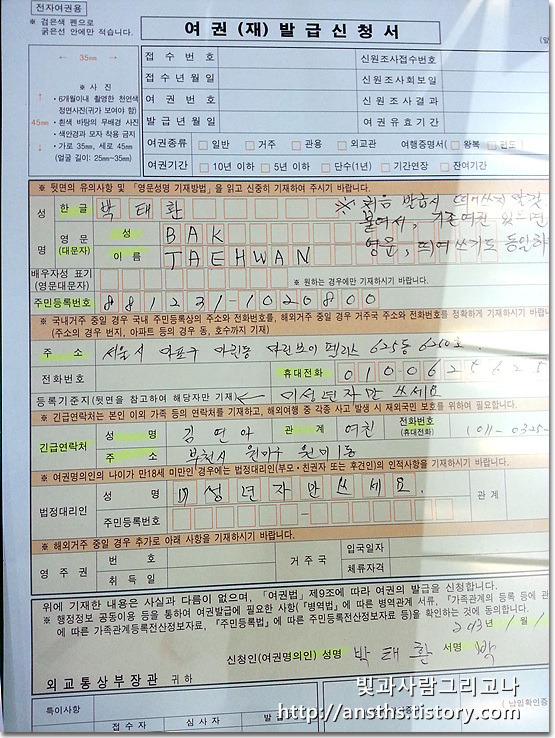 전자여권용
※ 검은색 펜으로
굵은선 안에만 적습니다.
여 권 (재) 발 급 신 청 서
← 35㎜ →
※ 사 진
↑ 45㎜ ↓
• 6개월이내 촬영한 천연색 정면사진(귀가 보여야 함)
• 흰색 바탕의 무배경 사진
• 색안경과 모자 착용 금지
• 가로 35㎜, 세로 45㎜
(얼굴 길이: 25㎜~35㎜)
접 수 번 호 신원조사접수번호
접 수 년 월 일 신원조사회보일
여 권 번 호 신원조사결과
발 급 년 월 일 여권유효기간
여권종류 □ 일반 □ 거주 □ 관용 □ 외교관 여행증명서( □ 왕복 □ 편도 )
여권기간 □ 10년 이하 □ 5년 이하 □ 단수(1년) □ 기간연장 □ 잔여기간
※ 뒷면의 유의사항 및 「영문성명 기재방법」을 읽고 신중히 기재하여 주시기 바랍니다.
성 명
한 글 박 태 환
※ 처음 발급시 띄어쓰지 말것
붙여서, 기존여권 있으면
영문, 띄여쓰기도 동일하
영 문 (대문자) 성 BAK
이 름 TAEHWAN
배우자성 표기 (영문대문자) ※ 원하는 경우에만 기재하시기 바랍니다.
주민등록번호 881231-1020800
※ 국내거주 중일 경우 국내 주민등록상의 주소와 전화번호를, 해외거주 중일 경우 거주국 주소와 전화번호를 정확하게 기재하시기 바랍니
(주소의 경우 번지, 아파트 등의 경우 동, 호수까지 기재)
주 소 서울시 마포구 아현동 625동 6210호.
전화번호 휴대전화 010 0625625
등록기준지(뒷면을 참고하여 해당자만 기재) ← 미성년자만 쓰세요
※ 긴급연락처는 본인 이외 가족 등의 연락처를 기재하고, 해외여행 중 각종 사고 발생 시 재외국민 보호를 위하여 필요합니다.
긴급연락처 성 명 김 연 아 관 계 여친 전화번호 (휴대전화) (011-0325-
주 소 부천시 원미구 원미1동
※ 여권명의인의 나이가 만18세 미만인 경우에는 법정대리인(부모·친권자 또는 후견인)의 인적사항을 기재하시기 바랍니다.
법정대리인 성 명 미성년자만쓰세요. 관 계
주민등록번호
※ 해외거주 중일 경우 추가로 아래 사항을 기재하시기 바랍니다.
영 주 권 번 호 거 주 국 입국일자
취 득 일 체류자격
위에 기재한 내용은 사실과 다름이 없으며, 「여권법」 제9조에 따라 여권의 발급을 신청합니다.
※ 행정정보 공동이용 등을 통하여 여권발급에 필요한 사항(「병역법」에 따른 병역관계 서류, 「가족관계의 등록 등에 관
에 따른 가족관계등록전산정보자료, 「주민등록법」에 따른 주민등록전산정보자료 등)을 확인하는 것에 동의합니다.
2013년 1월 1
신청인(여권명의인) 성명 박 태 환 서명 박
외교통상부장관 귀 하
빛과사람그리고나
특이사항
http://ansths.tistory.com
접 수 자 심 사 자